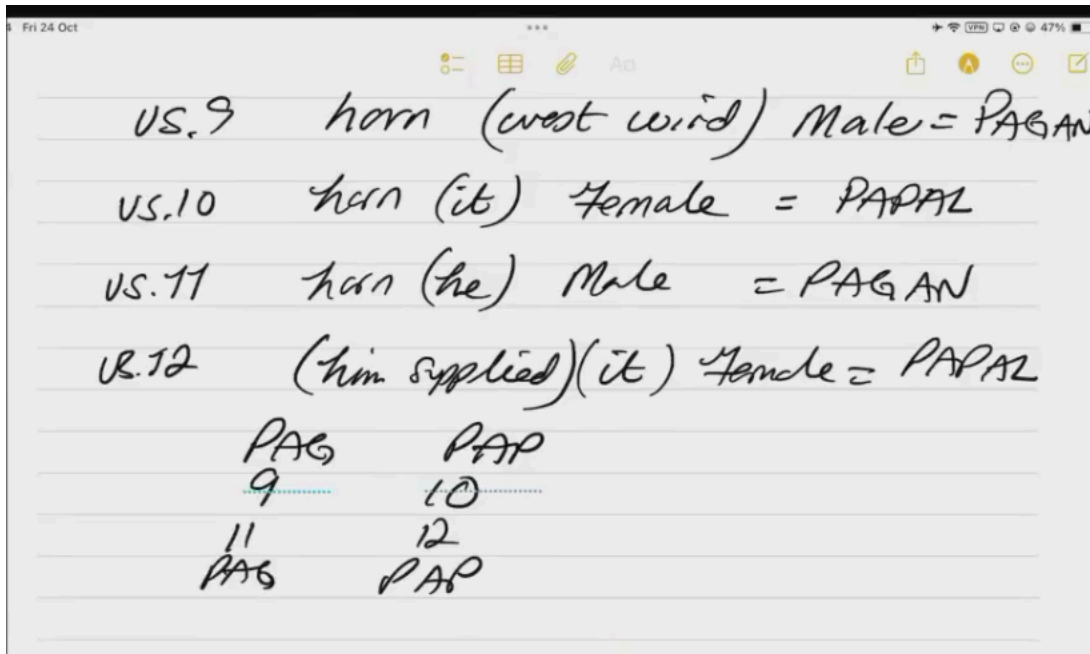 Fri 24 Oct
47%
VPN
Aa
vs.9 horn (west wind) Male = PAGAN
vs.10 horn (it) Female = PAPAL
vs.11 horn (he) Male = PAGAN
vs.12 (him supplied)(it) Female = PAPAL
PAG PAP
9 10
11 12
PAG PAP